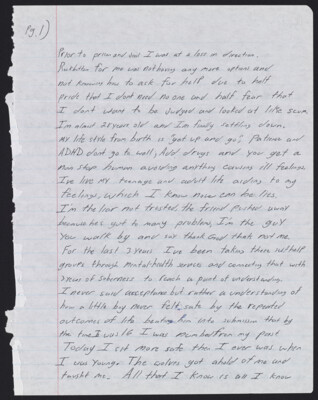 Pg. 1)
Prior to prison and but I was at a loss in direction.
Rockbottom for me was not having any more options and
not knowing how to ask for half due to half
pride that I dont need no one and half fear that
I dont want to be judged and looked at like scum
I'm almost 28 years old and I'm finally settling down.
My life style from birth is "get up and go", Patience and
ADHD dont go to well, Add drugs and you get a
non stop human avoiding anything causing ill feelings.
I've live my teenage and adult life aiding to my
feelings, which I know now can be lies.
I'm the liar not trusted, the friend picked
to many problems, I'm the guy
you walk by and say thank God thats not me.
For the last 2 years I've been taking them self help
groups through mental health services and cementing that with
2 years of soberness to reach a point of understanding.
I never said acceptance but rather a understanding of
how a little boy never felt safe by the repeated
outcomes of life beating him into submission that by
the time I was 16 I was numbed from my past
Today I sit more safe then I ever was when
I was younger. The waters got ahold of me and
taught me. All that I know is all I know